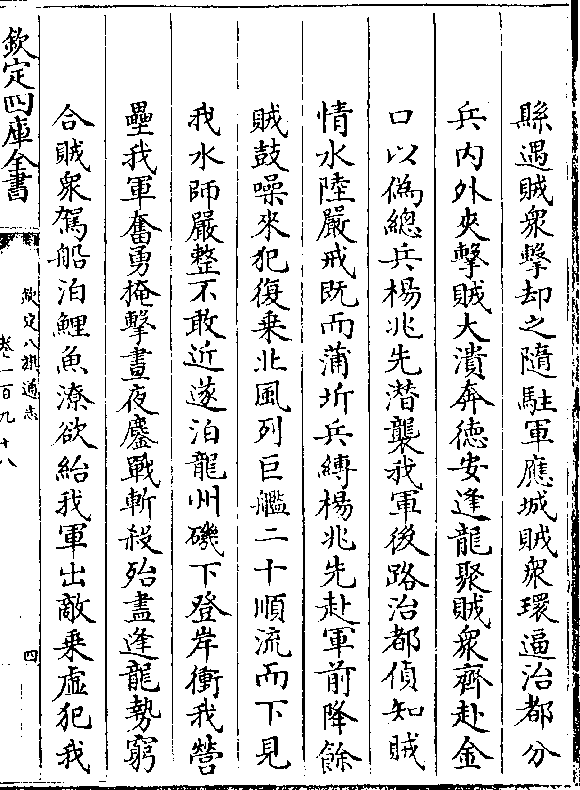 縣遇賊衆擊却之隨駐軍應城賊衆環逼治都分
兵内外夾擊賊大潰奔德安逢龍聚賊衆齊赴金
口以僞總兵楊兆先潜襲我軍後路治都偵知賊
情水陸嚴戒既而蒲圻兵縛楊兆先赴軍前降餘
賊鼓噪來犯復乗北風列巨艦二十順流而下見
我水師嚴整不敢近遂泊龍州磯下登岸衝我營
壘我軍奮勇掩擊晝夜鏖戰斬殺殆盡逢龍勢窮
合賊衆駕船泊鯉魚潦欲紿我軍出敵乗虛犯我
欽定四庫全書
欽定八旗通志
卷一百九十八
四